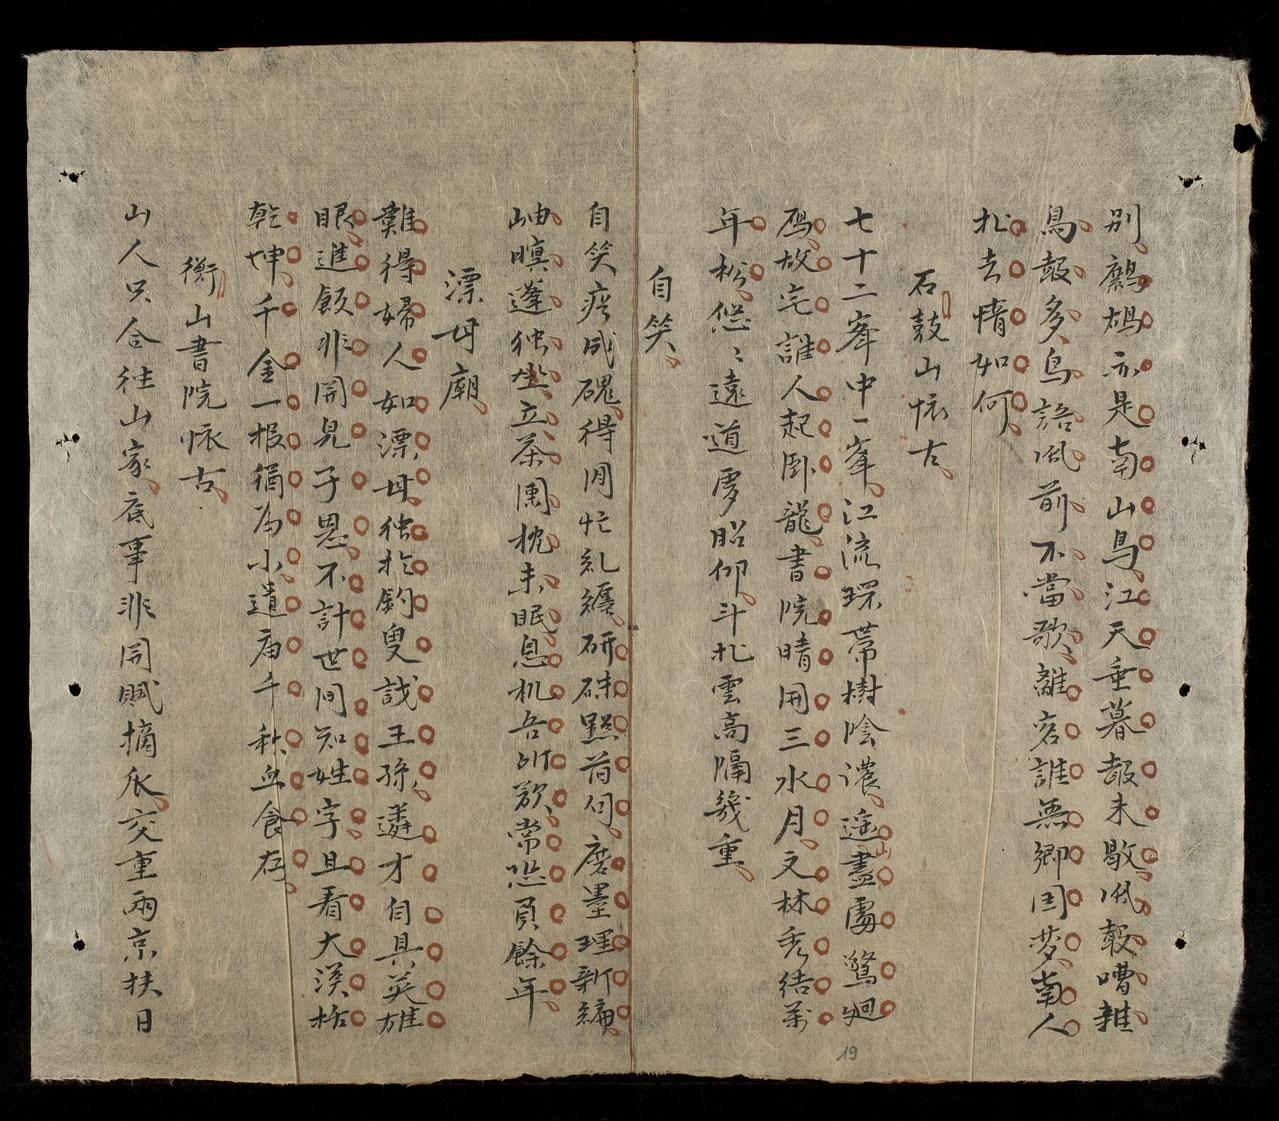 別鷓鴣亦是南山鳥江天垂暮報未歇風報嘈雜
鳥報多鳥語風前不當歌離客誰無鄉国梦南人
北去情如何
石鼓山懷古
七十二峯中一峯江流環帶樹陰濃遥山盡處驚廻
雁故宅誰人起卧龍書院晴開三水月文林秀結萬
年松悠〻遠道勞昭仰斗北雲高隔幾重
自笑
自笑痞成磈得閒忙乱纏研硃點荷句磨墨理新編
岫暝蓬独坐立茶團枕未眠息机吾所欲常恐負餘年
漂母廟
難得婦人如漂母独於釣叟識王孫遴才自具英雄
眼進飯非開兒子恩不計世间知姓字且看大漢拓
乾坤千金一报猶为小遺庙千秋血食存
衡山書院懷古
山人只合往山家底事非開賦摘瓜交重兩京扶日
19